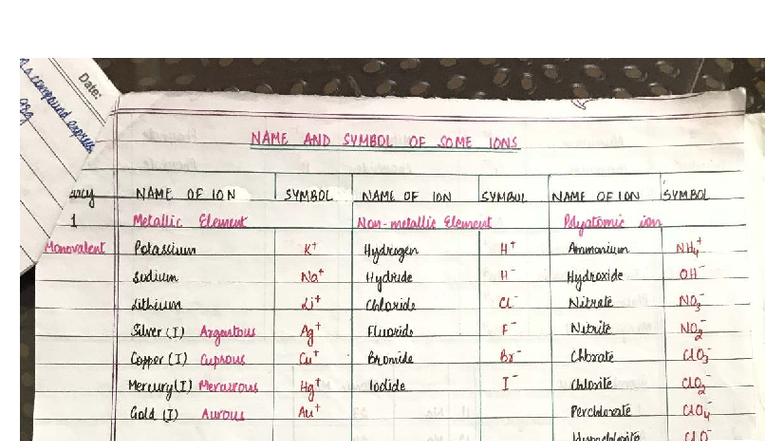 Date:
a compound express
NAME AND SYMBOL OF SOME IONS
NAME OF ION SYMBOL NAME OF ION SYMBOL NAME OF ION SYMBOL
1 Metallic Element Non-metallic Element Polyatomic ion
Monovalent Potassium K⁺ Hydrogen H⁺ Ammonium NH₄⁺
Sodium Na⁺ Hydride H⁻ Hydroxide OH⁻
Lithium Li⁺ Chloride Cl⁻ Nitrate NO₃⁻
Silver (I) Argentous Ag⁺ Fluoride F⁻ Nitrite NO₂⁻
Copper (I) Cuprous Cu⁺ Bromide Br⁻ Chlorate ClO₃⁻
Mercury (I) Mercurous Hg⁺ Iodide I⁻ Chlorite ClO₂⁻
Gold (I) Aurous Au⁺ Perchlorate ClO₄⁻
Hypochlorite ClO⁻